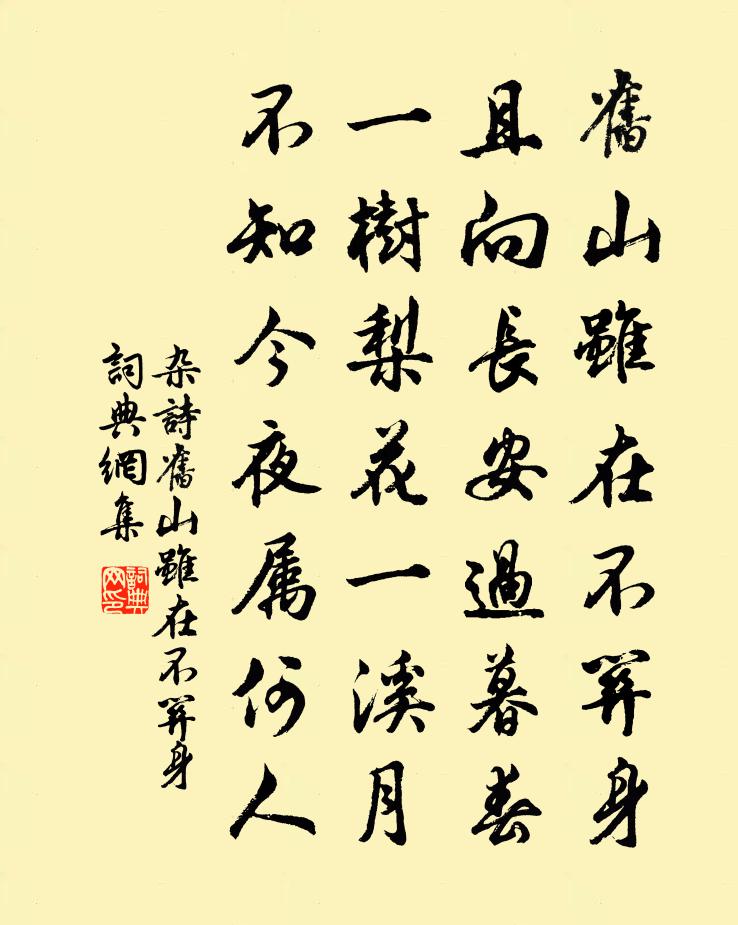 舊山雖在不關身
且向長安過暮春
一樹梨花一溪月
不知今夜属何人
杂詩舊山雖在不關身
詞典網集
詞典
网印